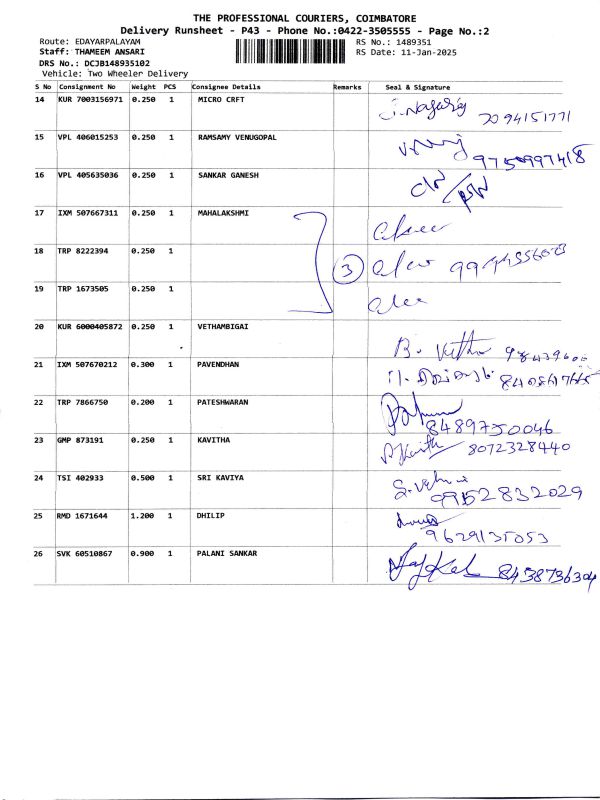 THE PROFESSIONAL COURIERS, COIMBATORE
Delivery Runsheet - P43 - Phone No.:0422-3505555 - Page No.:2
Route: EDAYARPALAYAM RS No.: 1489351
Staff: THAMEEM ANSARI RS Date: 11-Jan-2025
DRS No.: DCJB148935102
Vehicle: Two Wheeler Delivery
S No Consignment No Weight PCS Consignee Details Remarks Seal & Signature
14 KUR 7003156971 0.250 1 MICRO CRFT 7094151771
15 VPL 406015253 0.250 1 RAMSAMY VENUGOPAL 9750997418
16 VPL 405635036 0.250 1 SANKAR GANESH
17 IXM 507667311 0.250 1 MAHALAKSHMI
18 TRP 8222394 0.250 1 3
19 TRP 1673505 0.250 1
20 KUR 6000405872 0.250 1 VETHAMBIGAI
21 IXM 507670212 0.300 1 PAVENDHAN
22 TRP 7866750 0.200 1 PATESHWARAN 8489750046
23 GMP 873191 0.250 1 KAVITHA 8072328440
24 TSI 402933 0.500 1 SRI KAVIYA 9952832029
25 RMD 1671644 1.200 1 DHILIP 9629135053
26 SVK 60510867 0.900 1 PALANI SANKAR 8438736304